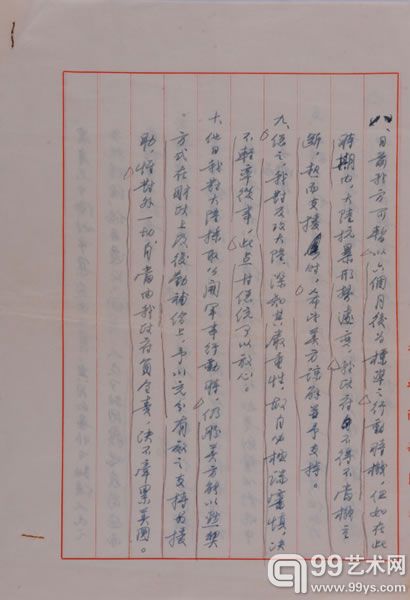 八、目前我方可暫以六個月後為標準之行動時機，但如在此
時期內，大陸抗暴形勢遽變，我政府不得不當機立
斷，起而支援時，希望美方諒解並予支持。
九、總之，我對反攻大陸，深知其嚴重性，故自必極謹審慎，決
不輕率從事，此点甘總統可以放心。
十、他日我對大陸採取公開軍事行動時，仍盼美方能以默契
方式在財政上及後勤補給上，予以充分有效之支持與援
助，惟對外一切自當由我政府負全責，決不牽累美國。
99艺术网
www.99ys.com